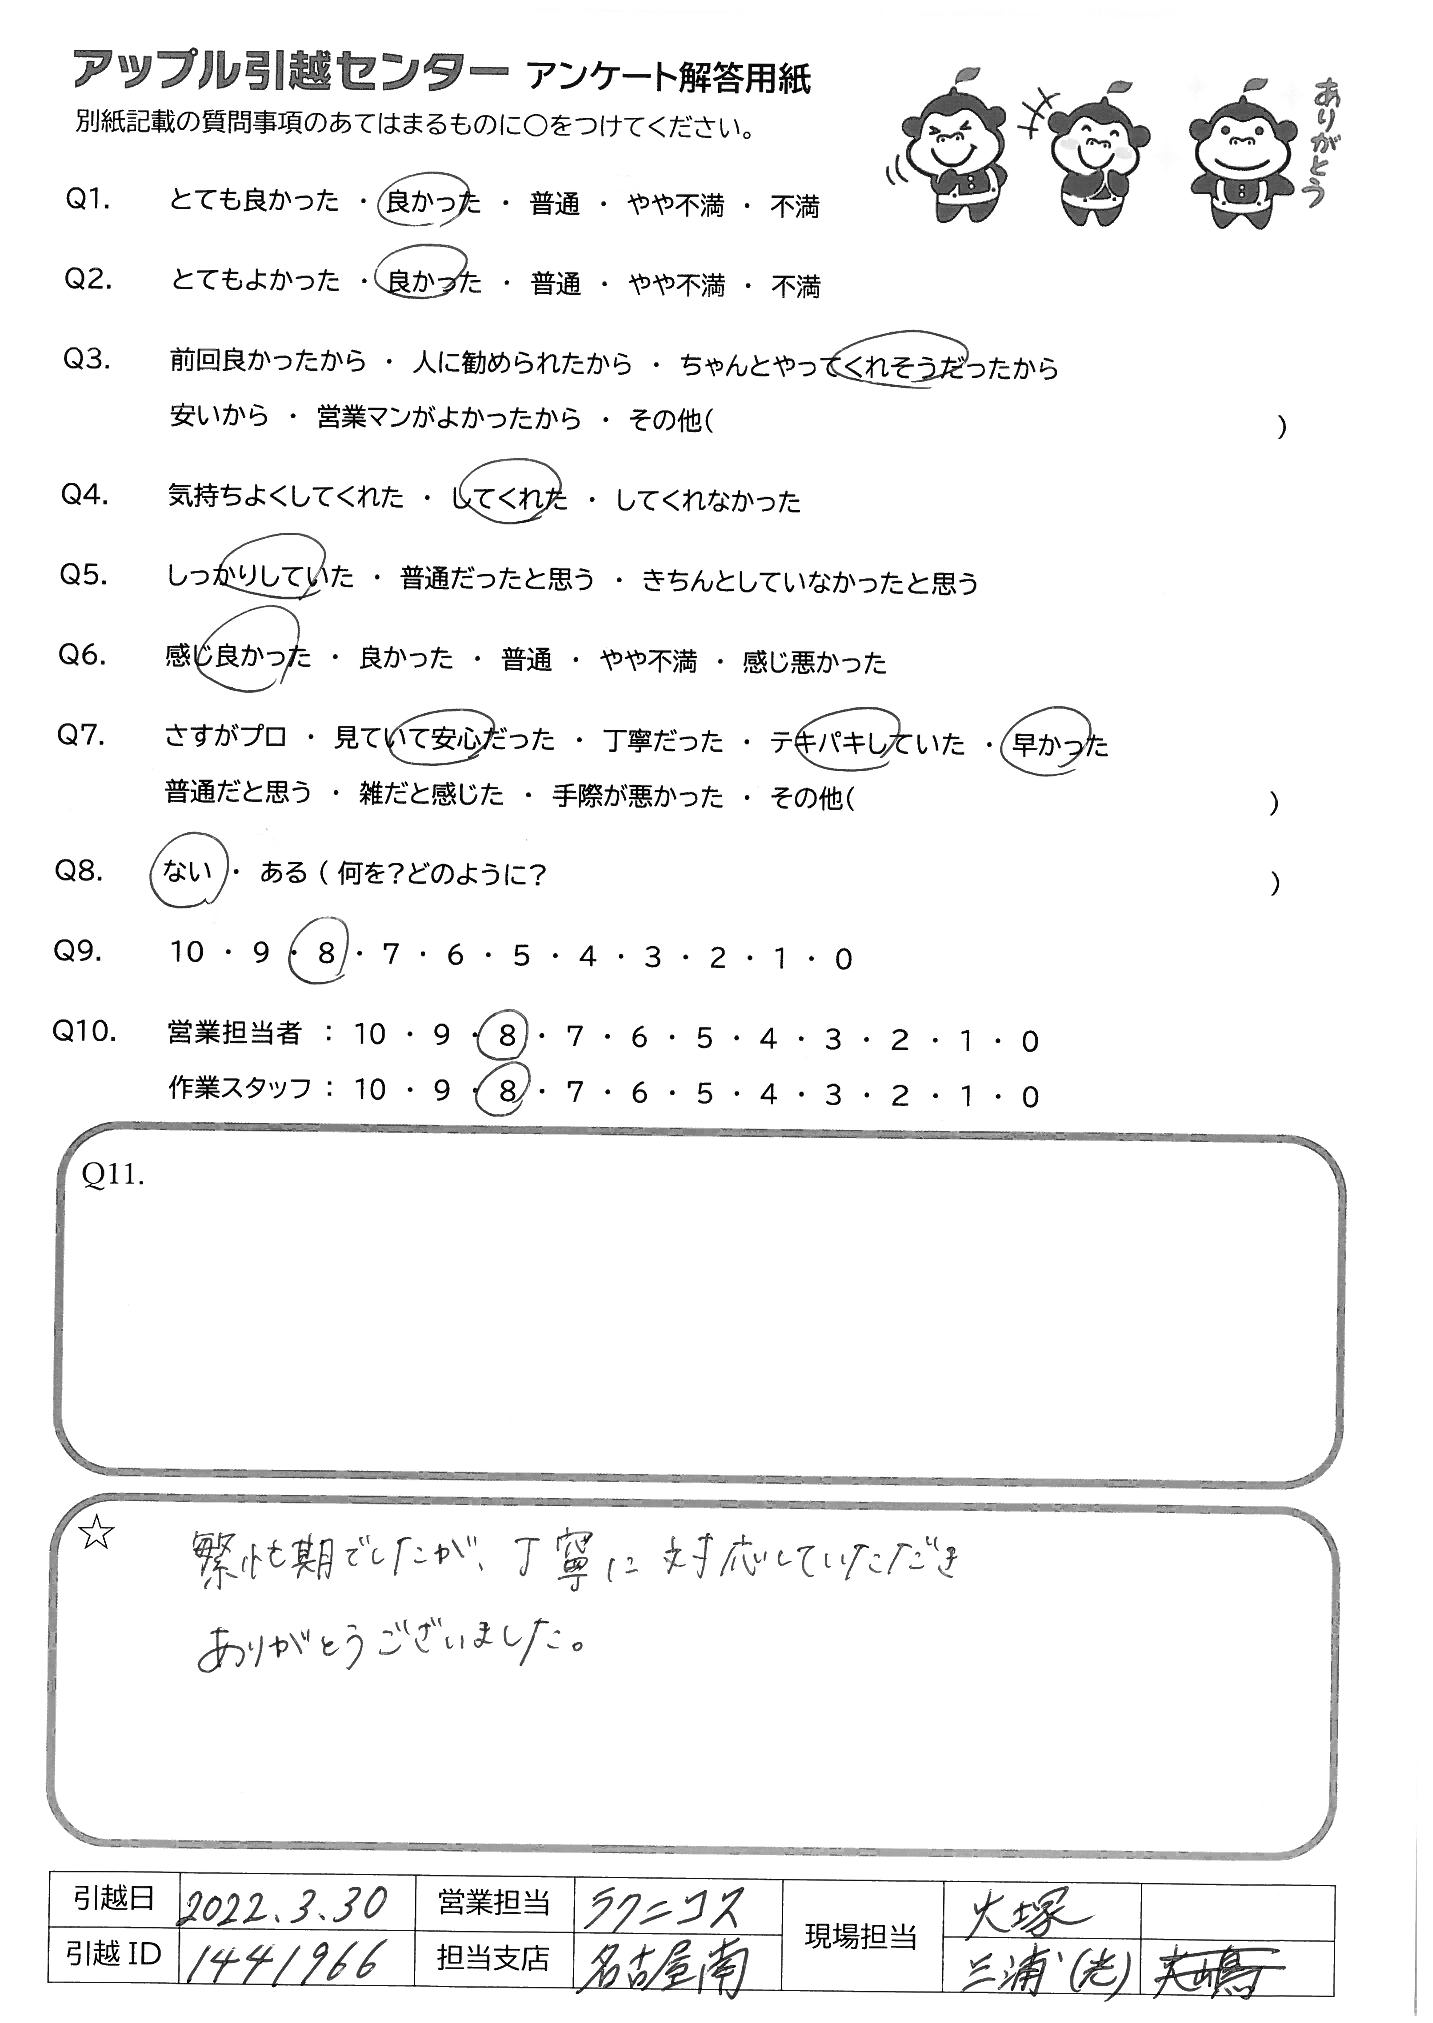 アップル引越センター アンケート解答用紙
ありがとう
別紙記載の質問事項のあてはまるものに○をつけてください。
Q1. とても良かった ・ 良かった ・ 普通 ・ やや不満 ・ 不満
Q2. とてもよかった ・ 良かった ・ 普通 ・ やや不満 ・ 不満
Q3. 前回良かったから ・ 人に勧められたから ・ ちゃんとやってくれそうだったから
安いから ・ 営業マンがよかったから ・ その他( )
Q4. 気持ちよくしてくれた ・ してくれた ・ してくれなかった
Q5. しっかりしていた ・ 普通だったと思う ・ きちんとしていなかったと思う
Q6. 感じ良かった ・ 良かった ・ 普通 ・ やや不満 ・ 感じ悪かった
Q7. さすがプロ ・ 見ていて安心だった ・ 丁寧だった ・ テキパキしていた ・ 早かった
普通だと思う ・ 雑だと感じた ・ 手際が悪かった ・ その他( )
Q8. ない ・ ある ( 何を?どのように? )
Q9. 10 ・ 9 ・ 8 ・ 7 ・ 6 ・ 5 ・ 4 ・ 3 ・ 2 ・ 1 ・ 0
Q10. 営業担当者 : 10 ・ 9 ・ 8 ・ 7 ・ 6 ・ 5 ・ 4 ・ 3 ・ 2 ・ 1 ・ 0
作業スタッフ : 10 ・ 9 ・ 8 ・ 7 ・ 6 ・ 5 ・ 4 ・ 3 ・ 2 ・ 1 ・ 0
Q11.
☆ 繁忙期でしたが、丁寧に対応していただき
ありがとうございました。
引越日 2022.3.30 営業担当 ラクニコス 現場担当 大塚
引越 ID 1441966 担当支店 名古屋南 三浦(光)